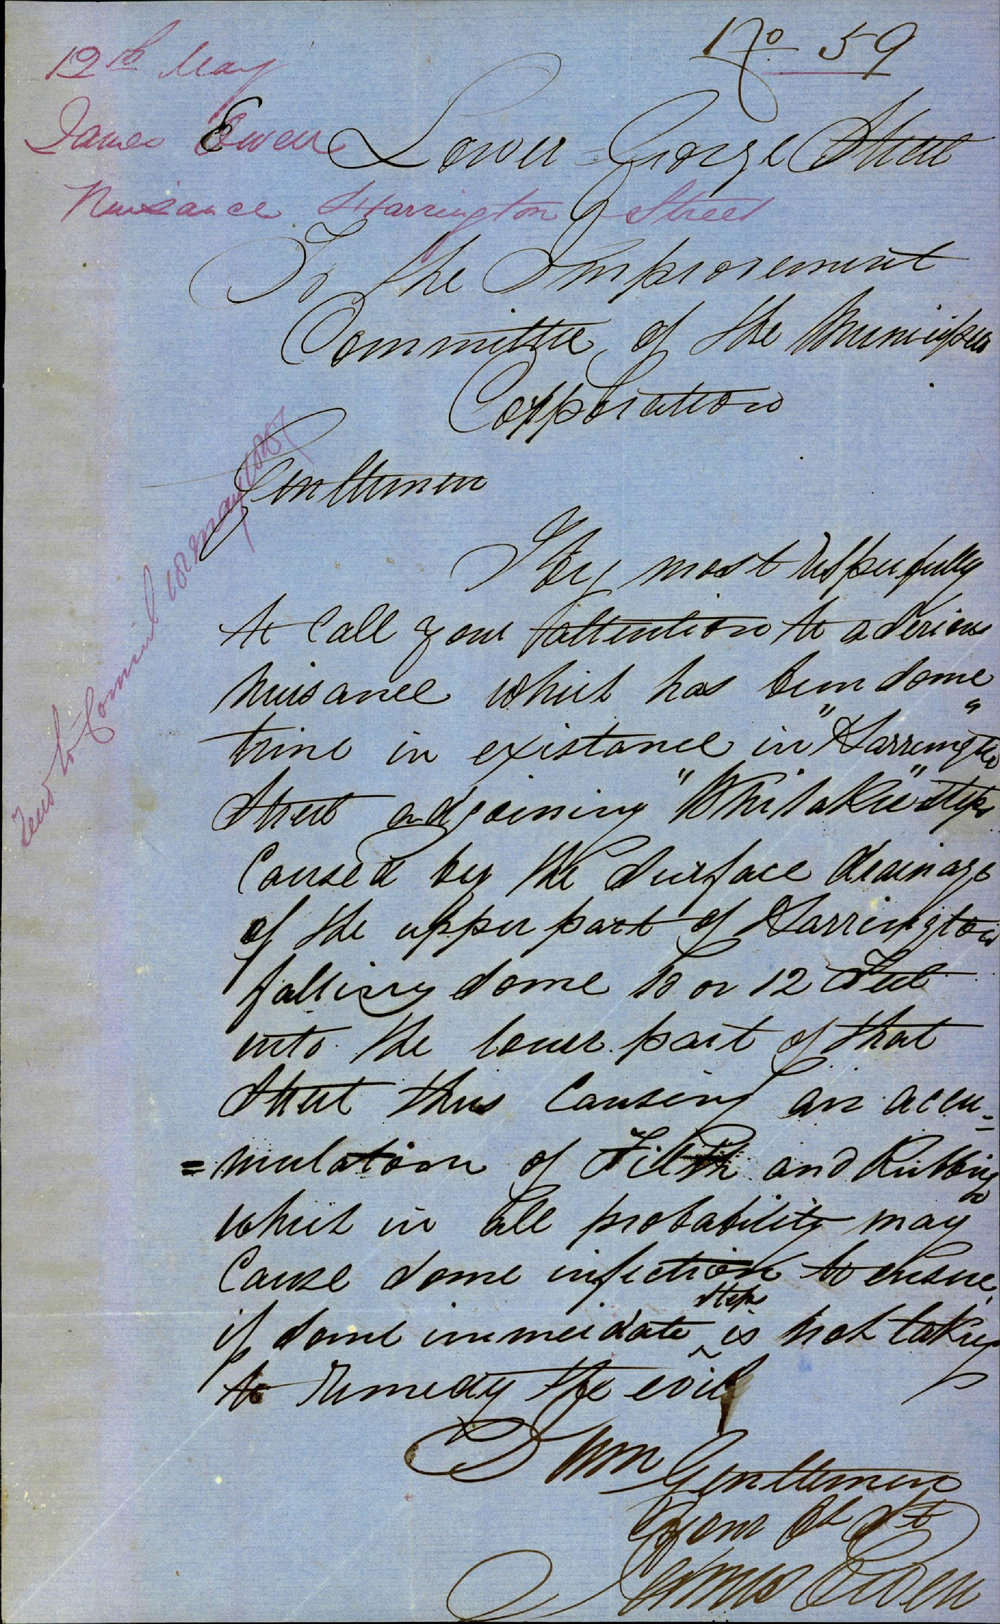 No 59
12th May
James Ewen
Lower George Street
Nuisance Harrington Street
To the Improvement
Committee of the Municipal
Corporation
Gentlemen
I beg most respectfully
to call your attention to a serious
nuisance which has been some
time in existance in "Harrington"
Street adjoining "Whitakers" steps
Caused by the surface drainage
of the upper part of Harrington
falling some 10 or 12 Feet
into the lower part of that
Street thus Causing an accu=
=mulation of Filth and Rubbing
which in all probability may
Cause some infection to ensue
if some immeidate step is not taking
to remedy the evil
I am Gentlemen
Your Ob St
James Ewen